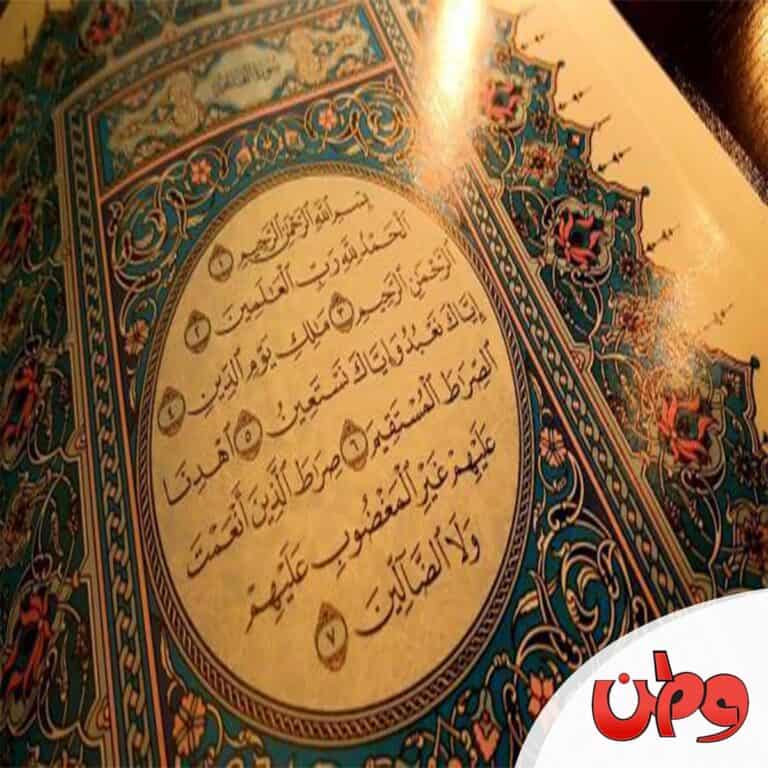 سورة الفاتحة
بِسْمِ ٱللَّهِ ٱلرَّحْمَٰنِ ٱلرَّحِيمِ ١
ٱلْحَمْدُ لِلَّهِ رَبِّ ٱلْعَٰلَمِينَ ٢
ٱلرَّحْمَٰنِ ٱلرَّحِيمِ ٣ مَٰلِكِ يَوْمِ ٱلدِّينِ ٤
إِيَّاكَ نَعْبُدُ وَإِيَّاكَ نَسْتَعِينُ ٥ ٱهْدِنَا
ٱلصِّرَٰطَ ٱلْمُسْتَقِيمَ ٦ صِرَٰطَ ٱلَّذِينَ أَنْعَمْتَ
عَلَيْهِمْ غَيْرِ ٱلْمَغْضُوبِ عَلَيْهِمْ
وَلَا ٱلضَّآلِّينَ ٧
وطن